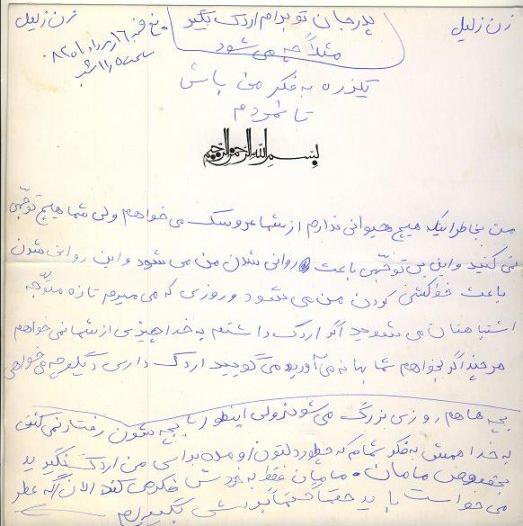 زن زلیل
پدر جان تو برام اردک بگیر
مثلاً چه می شود
زن زلیل
یکذره به فکر من باش
تا نمردم
بسم الله الرحمن الرحیم
من بخاطر اینکه هیچ هیوانی ندارم از شما عروسک می خواهم ولی شما هیچ توجّهی
نمی کنید و این بی توجّهی باعث روانی شدن من می شود و این روانی شدن
باعث خودکشی کردن من می شود و روزی که می میرم تازه متوّجه
اشتباهتان می شوید اگر اردک داشتم به خدا چیزی از شما نمی خواهم
هر چند اگر بخواهم شما بهانه می آورید می گویید اردک داری دیگر چه می خواهی
بچه ها هم روزی بزرگ می شوند ولی اینطور با بچه شون رفتار نمی کنن
به خدا همش به فکر شمام که چطور دلتون اومده براسی من اردک نگیرید
بخصوص مامان. مامان فقط به خودش فکر می کند الان اگه عطر
می خواست باید حتماً حتماً براش بگیریم